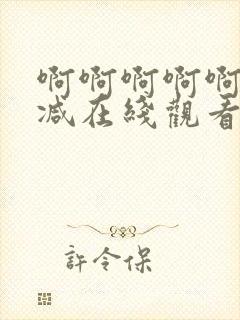 啊啊啊啊啊
减在綫觀看
許令保